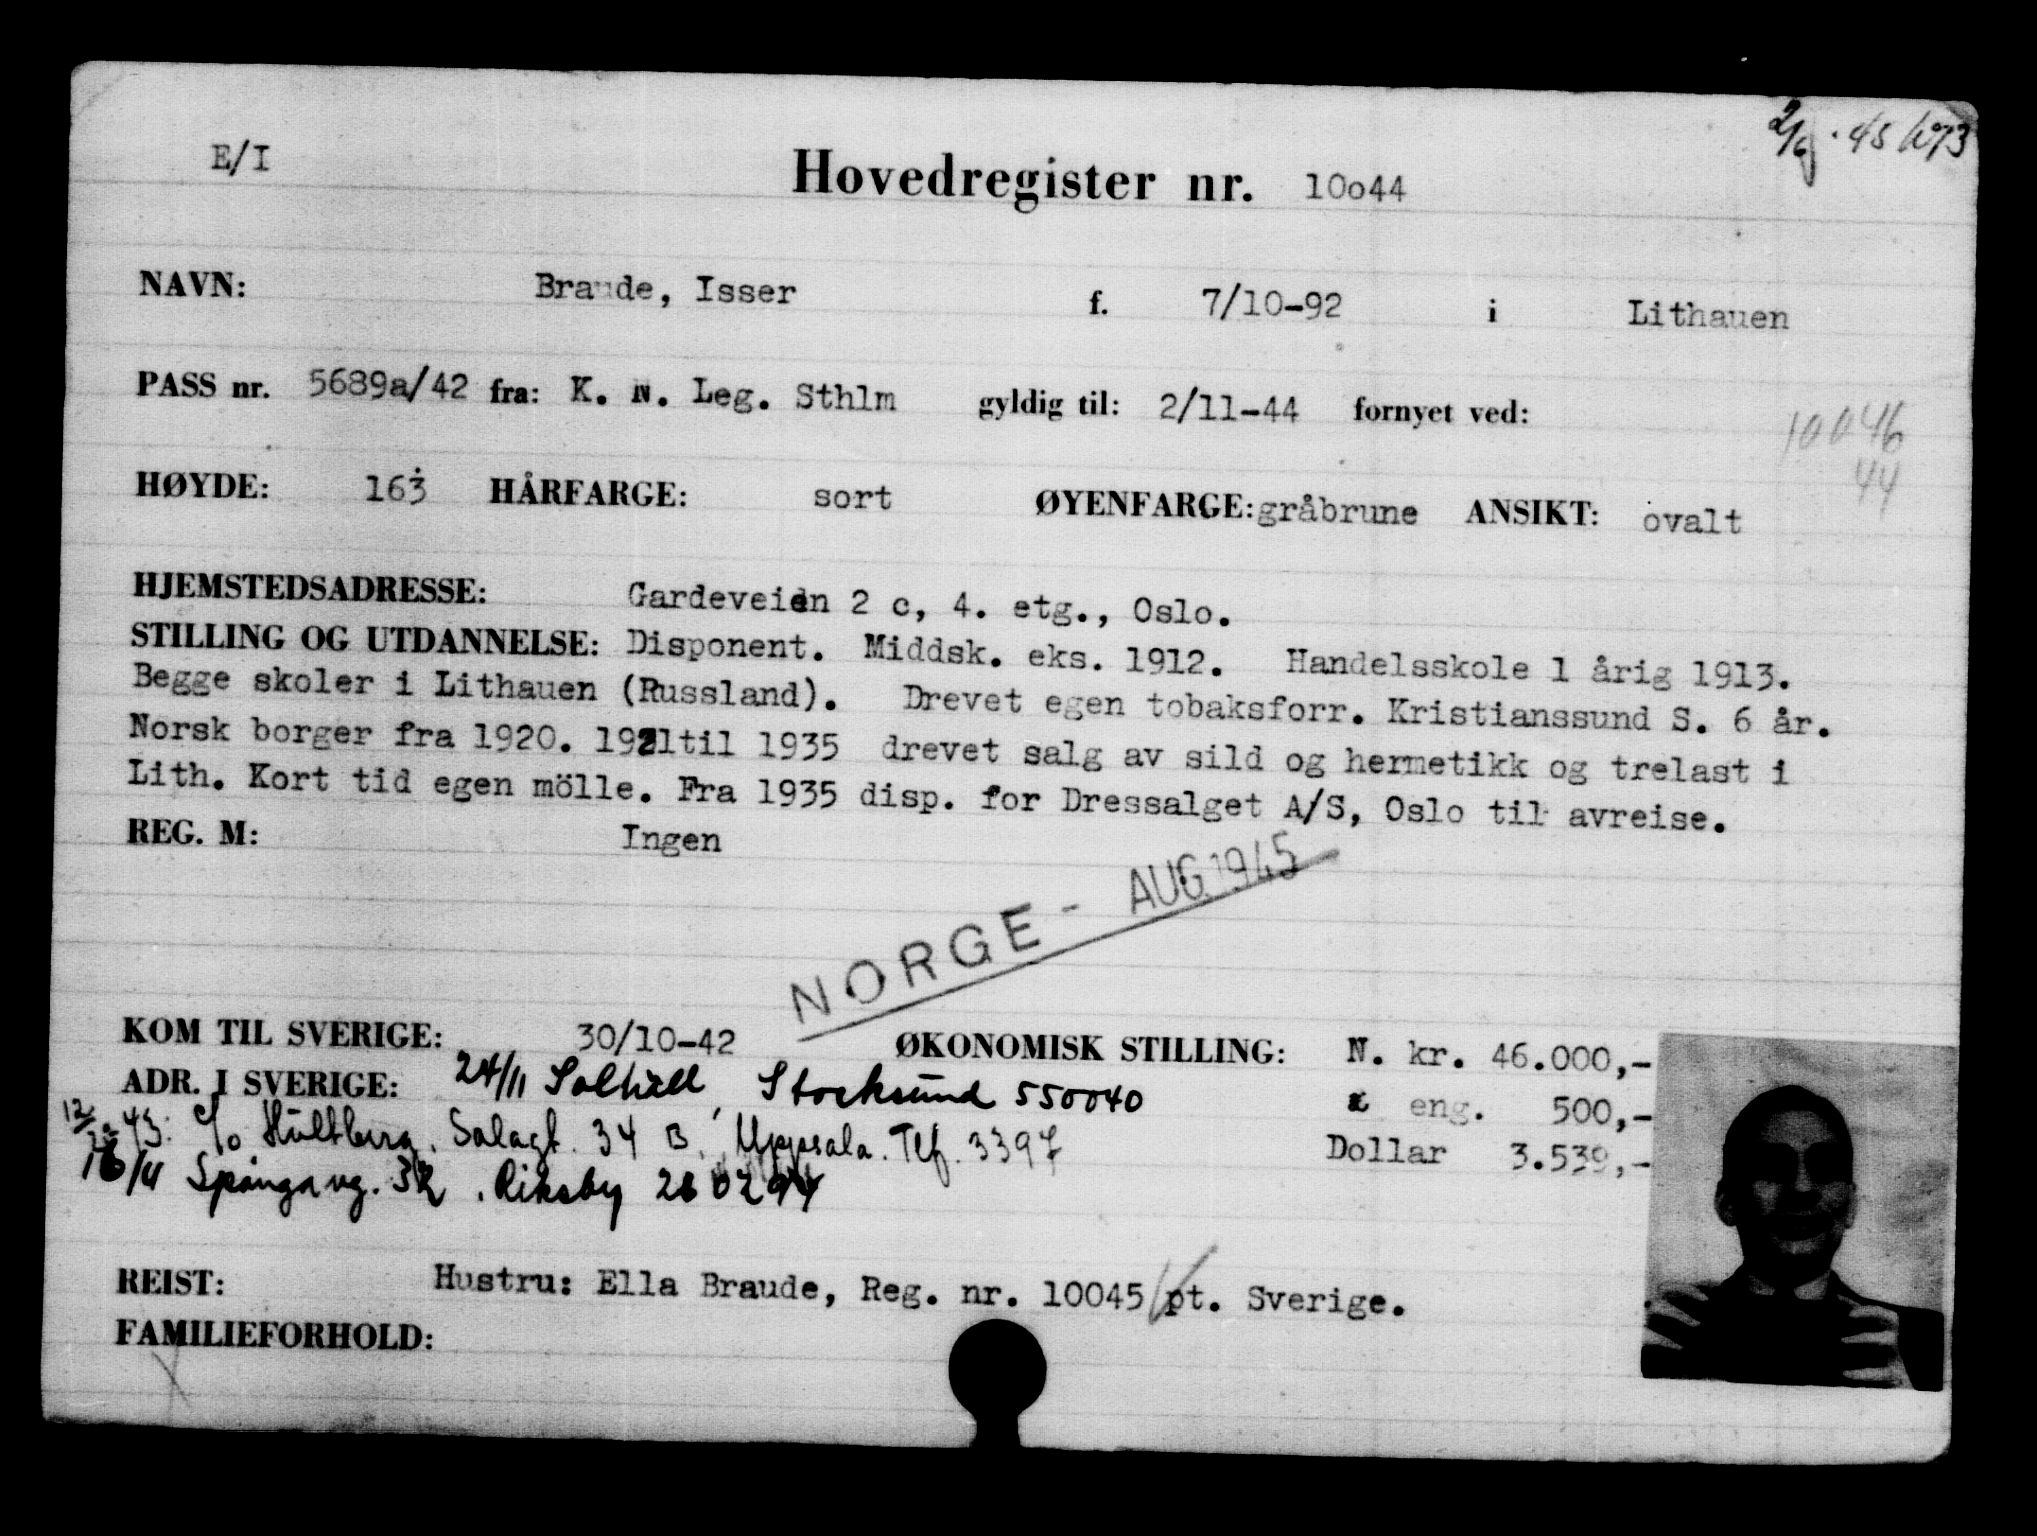 E/I
Hovedregister nr. 10o44
NAVN: Braude, Isser f. 7/10-92 i Lithauen
PASS nr. 5689a/42 fra: K. N. Leg. Sthlm gyldig til: 2/11-44 fornyet ved:
10046
44
HØYDE: 163 HÅRFARGE: sort ØYENFARGE: gråbrune ANSIKT: ovalt
HJEMSTEDSADRESSE: Gardeveien 2 c, 4. etg., Oslo.
STILLING OG UTDANNELSE: Disponent. Middsk. eks. 1912. Handelsskole 1 årig 1913.
Begge skoler i Lithauen (Russland). Drevet egen tobaksforr. Kristianssund S. 6 år.
Norsk borger fra 1920. 1921til 1935 drevet salg av sild og hermetikk og trelast i
Lith. Kort tid egen mölle. Fra 1935 disp. for Dressalget A/S, Oslo til avreise.
REG. M: Ingen
NORGE - AUG 1945
KOM TIL SVERIGE: 30/10-42 ØKONOMISK STILLING: N. kr. 46.000,-
ADR. I SVERIGE: 24/11 Solhäll, Stocksund 550040 £ eng. 500,-
43. c/o Hultberg, Salagt. 34 B, Uppsala. Tlf. 3397 Dollar 3.539,-
Spångavg. Riksby
REIST: Hustru: Ella Braude, Reg. nr. 10045 pt. Sverige.
FAMILIEFORHOLD: